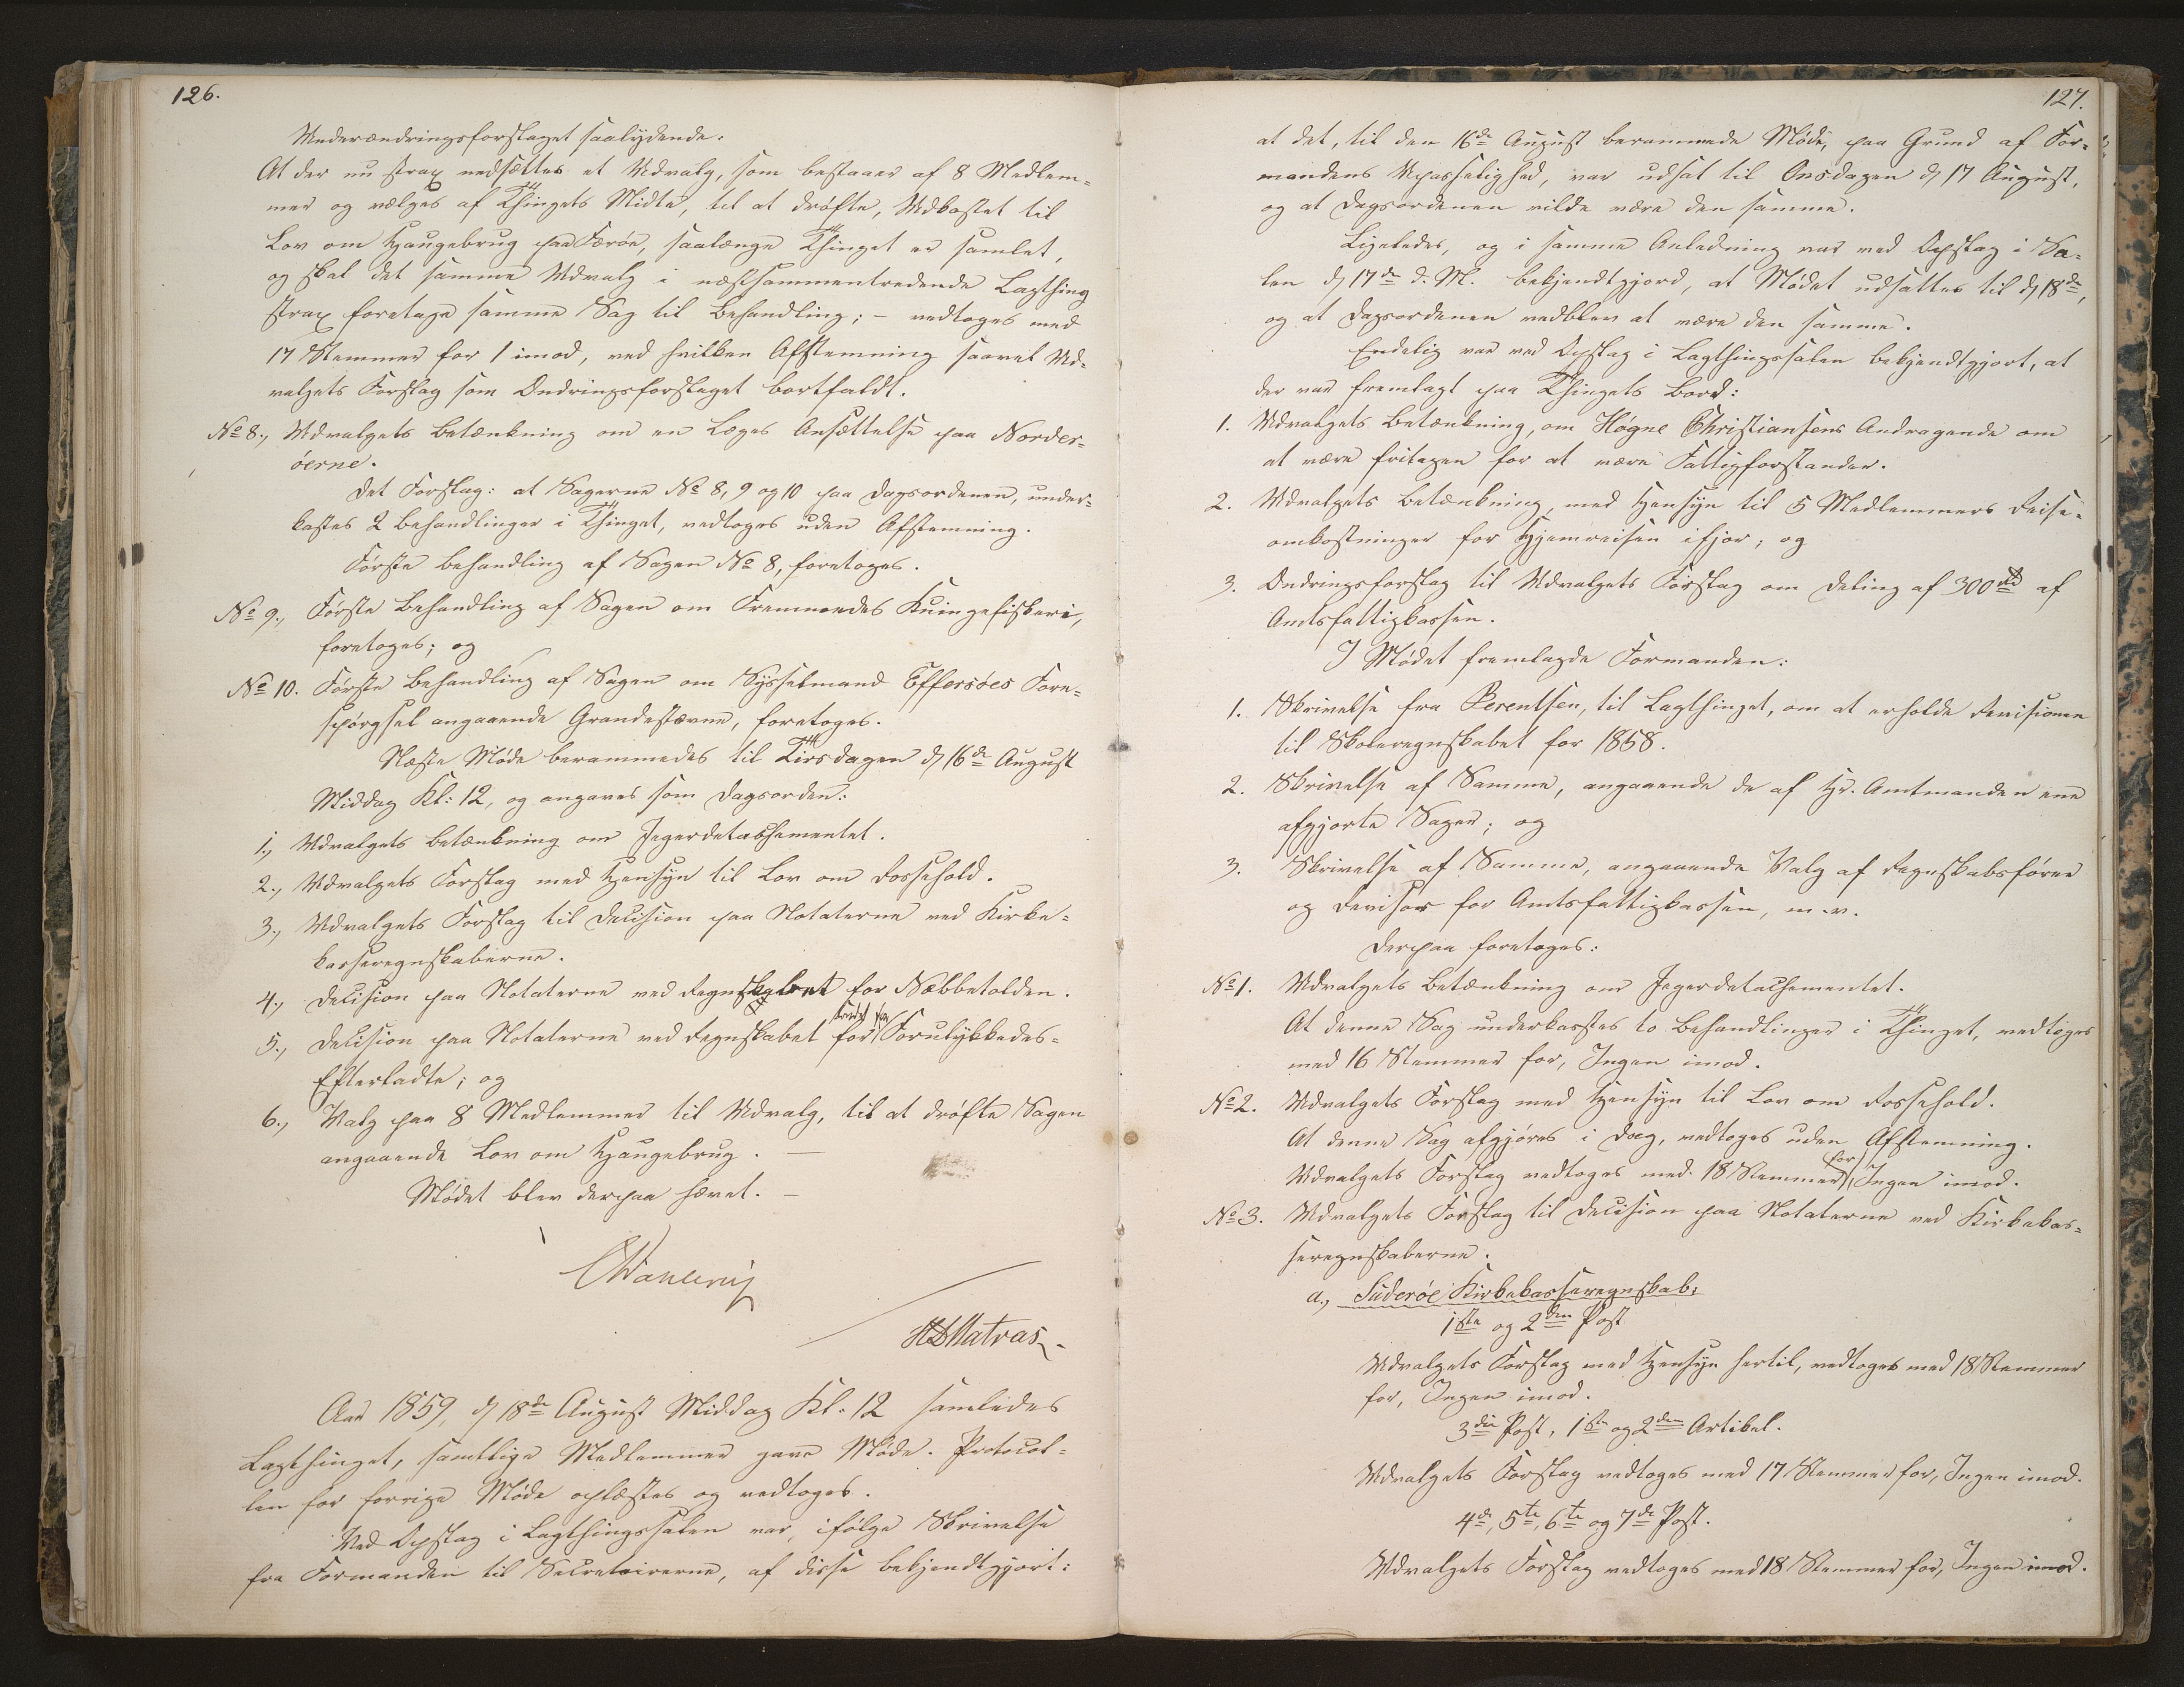 126.
Underændringsforslaget saalydende:
At der nu strax nedsættes et Udvalg, som bestaaer af 8 Medlem-
mer og vælges af Thingets Midte, til at drøfte, Udkastet til
Lov om Haugebrug paa Færøe, saalænge Thinget er samlet,
og skal det samme Udvalg i næstsammentredende Lagthing
strax foretage samme Sag til Behandling; - vedtoges med
17 Stemmer for 1 imod, ved hvilken Afstemning saavel Ud-
valgets Forslag som Ændringsforslaget bortfaldt.
No 8., Udvalgets Betænkning om en Læges Ansættelse paa Norder-
øerne.
Det Forslag: at Sagerne No 8, 9 og 10 paa Dagsordenen, under-
kastes 2 Behandlinger i Thinget, vedtoges uden Afstemning.
Første Behandling af Sagen No 8, foretoges.
No 9., Første Behandling af Sagen om Fremmedes Kuingefiskeri,
foretoges; og
No 10. Første Behandling af Sagen om Sysselmand Effersøes Fore-
spørgsel angaaende Grandestævne, foretoges.
Næste Møde berammedes til Tirsdagen d. 16de August
Middag Kl: 12, og angaves som Dagsorden:
1., Udvalgets Betænkning om Jegerdetachementet.
2., Udvalgets Forslag med Hensyn til Lov om Fossehold.
3., Udvalgets Forslag til Decision paa Notaterne ved Kirke-
kasseregnskaberne.
4., Decision paa Notaterne ved Regnskabet for Næbbetolden.
5., Decision paa Notaterne ved Regnskabet for Fondet for Forulykkedes-
Efterladte; og
6., Valg paa 8 Medlemmer til Udvalg, til at drøfte Sagen
angaaende Lov om Haugebrug. -
Mødet blev derpaa hævet. -
CDahlerup
HDMatras.
Aar 1859, d. 18de August Middag Kl. 12 samledes
Lagthinget, samtlige Medlemmer gave Møde. Protocol-
len for forrige Møde oplæstes og vedtoges.
Ved Opslag i Lagthingssalen var, ifølge Skrivelse
fra Formanden til Secretairerne, af disse bekjendtgjort:
127.
at det, til den 16de August berammede Møde, paa Grund af For-
mandens Upasselighed, var udsat til Onsdagen d. 17 August,
og at Dagsordenen vilde være den samme.
Ligeledes, og i samme Anledning var ved Opslag i Sa-
len d. 17de d. M. bekjendtgjord, at Mødet udsattes til d. 18de,
og at Dagsordenen vedblev at være den samme.
Endelig var ved Opslag i Lagthingssalen bekjendtgjort, at
der var fremlagt paa Thingets Bord:
1. Udvalgets Betænkning, om Høgne Christiansens Andragende om
at være fritagen for at være Fattigforstander.
2. Udvalgets Betænkning, med Hensyn til 5 Medlemmers Reise-
omkostninger for Hjemreisen ifjor; og
3. Ændringsforslag til Udvalgets Forslag om Deling af 300 rd af
Amtsfattigkassen.
I Mødet fremlagde Formanden:
1. Skrivelse fra Berentsen, til Lagthinget, om at erholde Revisionen
til Skoleregnskabet for 1858.
2. Skrivelse af Samme, angaaende de af Hr. Amtmanden ene
afgjorte Sager; og
3. Skrivelse af Samme, angaaende Valg af Regnskabsfører
og Revisor for Amtsfattigkassen, m. v.
Derpaa foretoges:
No 1. Udvalgets Betænkning om Jegerdetachementet.
At denne Sag underkastes to Behandlinger i Thinget, vedtoges
med 16 Stemmer for, Ingen imod.
No 2. Udvalgets Forslag med Hensyn til Lov om Fossehold.
At denne Sag afgjøres i Dag, vedtoges uden Afstemning.
Udvalgets Forslag vedtoges med 18 Stemmer for, Ingen imod.
No 3. Udvalgets Forslag til Decision paa Notaterne ved Kirkekas-
seregnskaberne.
a., Suderøe Kirkekasseregnskab,
1ste og 2den Post
Udvalgets Forslag med Hensyn hertil, vedtoges med 18 Stemmer
for, Ingen imod.
3die Post, 1ste og 2den Artikel.
Udvalgets Forslag vedtoges med 17 Stemmer for, Ingen imod.
4de, 5te, 6te og 7de Post.
Udvalgets Forslag vedtoges med 18 Stemmer for, Ingen imod.